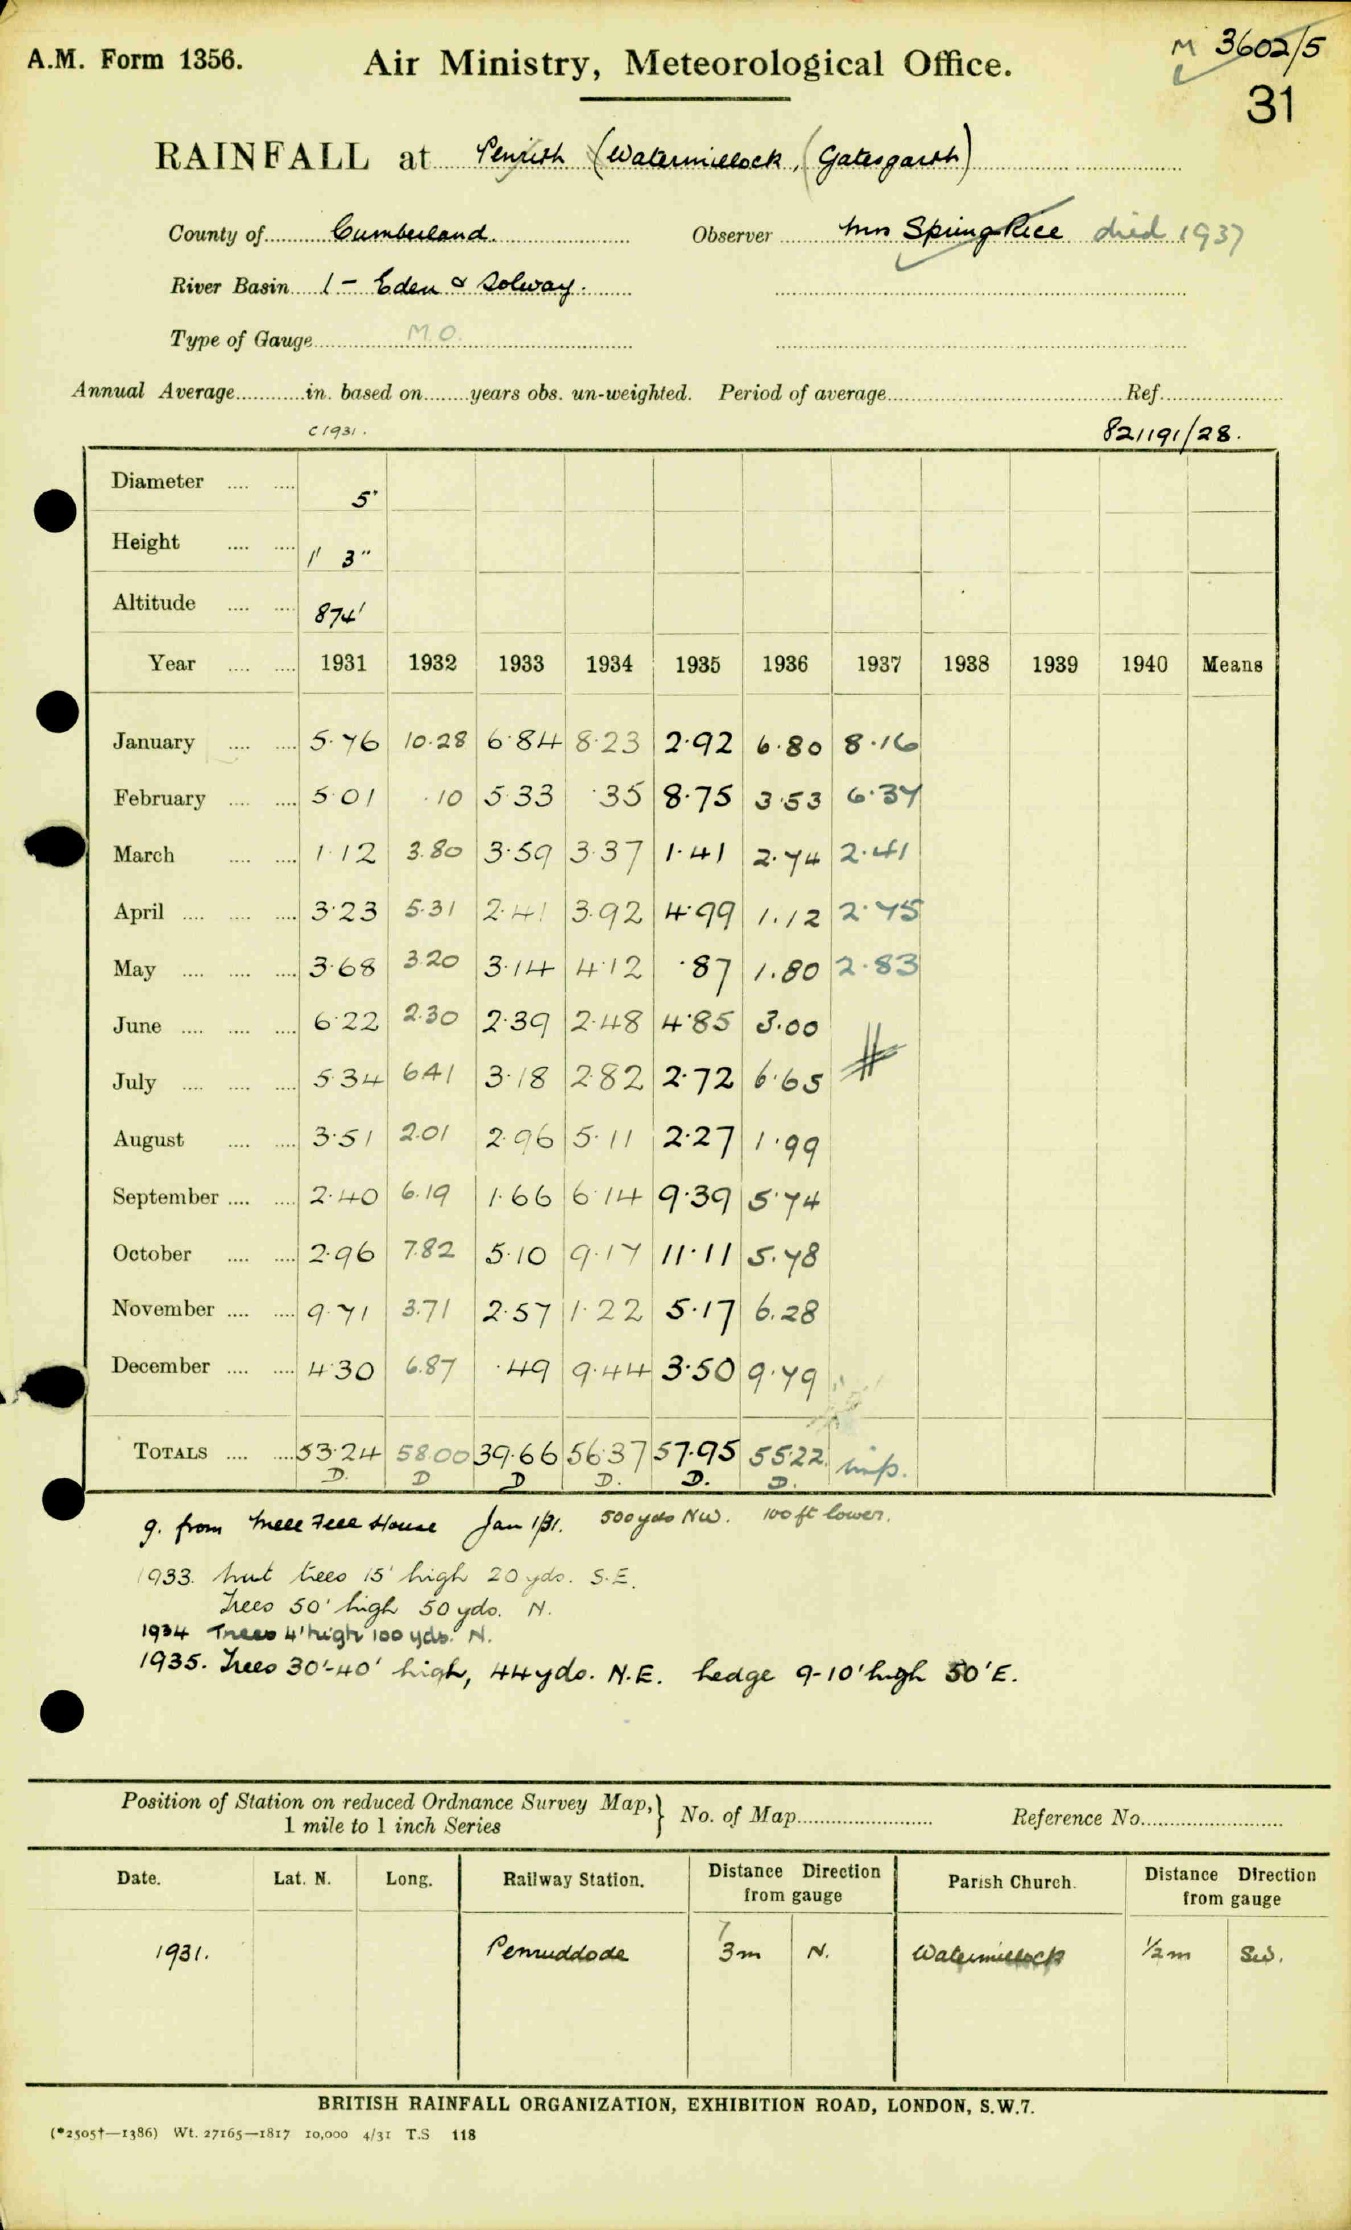 A.M. Form 1356.
Air Ministry, Meteorological Office.
M 3602/5
31
RAINFALL at Penrith (Watermillock, (Gatesgarth)
County of Cumberland. Observer Mrs Spring Rice died 1937
River Basin 1 - Eden & Solway.
Type of Gauge M.O.
Annual Average in. based on years obs. un-weighted. Period of average Ref.
c 1931. 821191/28.
Diameter 5"
Height 1' 3"
Altitude 874'
Year 1931 1932 1933 1934 1935 1936 1937 1938 1939 1940 Means
January 5.76 10.28 6.84 8.23 2.92 6.80 8.16
February 5.01 .10 5.33 .35 8.75 3.53 6.37
March 1.12 3.80 3.59 3.37 1.41 2.74 2.41
April 3.23 5.31 2.41 3.92 4.99 1.12 2.75
May 3.68 3.20 3.14 4.12 .87 1.80 2.83
June 6.22 2.30 2.39 2.48 4.85 3.00
July 5.34 6.41 3.18 2.82 2.72 6.65
August 3.51 2.01 2.96 5.11 2.27 1.99
September 2.40 6.19 1.66 6.14 9.39 5.74
October 2.96 7.82 5.10 9.17 11.11 5.78
November 9.71 3.71 2.57 1.22 5.17 6.28
December 4.30 6.87 .49 9.44 3.50 9.79
TOTALS 53.24 58.00 39.66 56.37 57.95 55.22 imp.
D. D D D. D. D.
g. from Mell Fell House Jan 1/31. 500 yds NW. 100 ft lower.
1933. Nut trees 15' high 20 yds. S.E.
Trees 50' high 50 yds. N.
1934 Trees 4' high 100 yds. N.
1935. Trees 30'-40' high, 44 yds. N.E. hedge 9-10' high 50' E.
Position of Station on reduced Ordnance Survey Map, } No. of Map Reference No.
1 mile to 1 inch Series
Date. Lat. N. Long. Railway Station. Distance Direction Parish Church. Distance Direction
from gauge from gauge
1931. Penruddode 3m N. Watermillock 1/2 m SW.
BRITISH RAINFALL ORGANIZATION, EXHIBITION ROAD, LONDON, S.W.7.
(*2505†—1386) Wt. 27165—1817 10,000 4/31 T.S 118